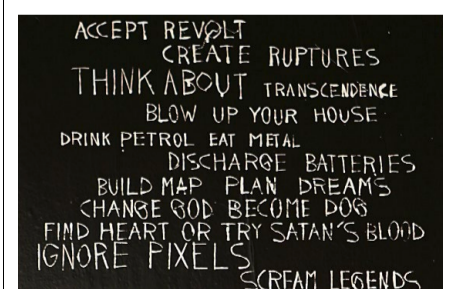 ACCEPT REVOLT
CREATE RUPTURES
THINK ABOUT TRANSCENDENCE
BLOW UP YOUR HOUSE
DRINK PETROL EAT METAL
DISCHARGE BATTERIES
BUILD MAP PLAN DREAMS
CHANGE GOD BECOME DOG
FIND HEART OR TRY SATAN'S BLOOD
IGNORE PIXELS
SCREAM LEGENDS